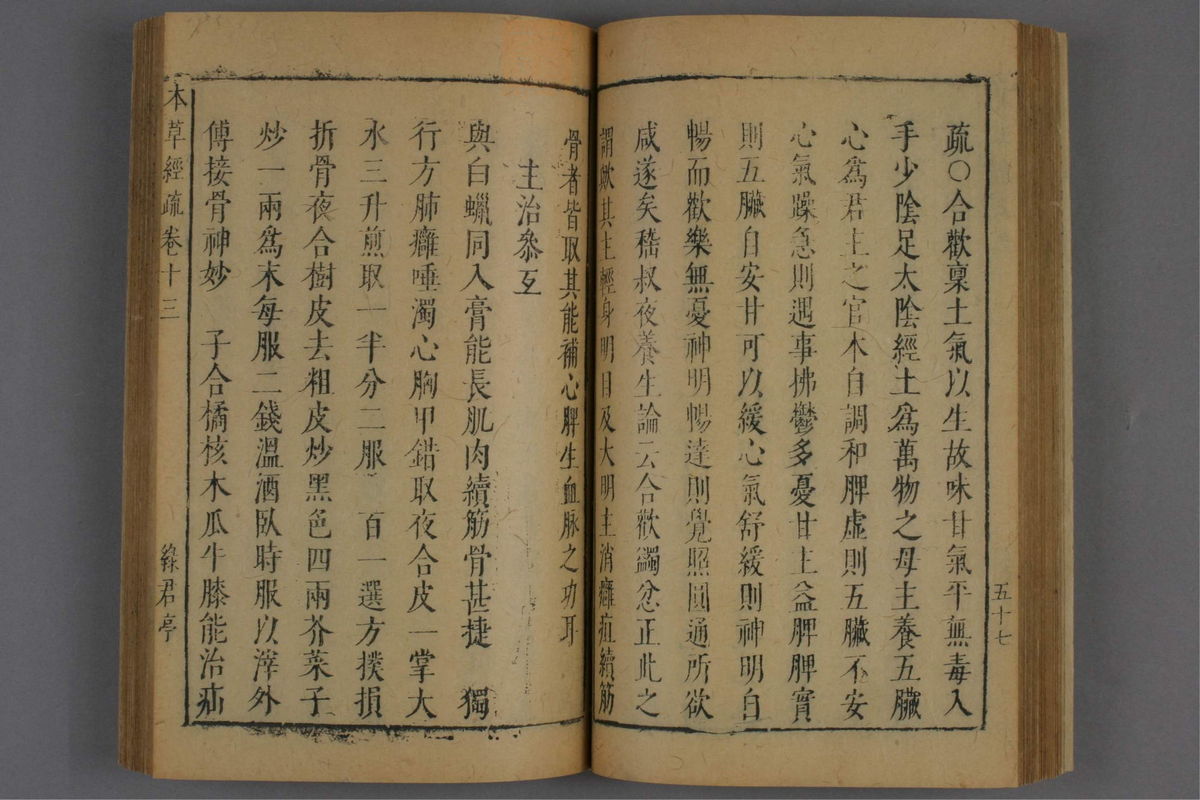 疏○合歡稟土氣以生故味甘氣平無毒入
手少陰足太陰經土爲萬物之母主養五臟
心爲君主之官本自調和脾虛則五臟不安
心氣躁急則遇事拂鬱多憂甘主益脾脾實
則五臟自安甘可以緩心氣舒緩則神明自
暢而歡樂無憂神明暢達則覺照圓通所欲
咸遂矣嵇叔夜養生論云合歡蠲忿正此之
謂歟其主輕身明目及大明主消癰疽續筋
骨者皆取其能補心脾生血脉之功耳
五十七
主治參互
與白蠟同入膏能長肌肉續筋骨甚捷 獨
行方肺癰唾濁心胸甲錯取夜合皮一掌大
水三升煎取一半分二服 百一選方撲損
折骨夜合樹皮去粗皮炒黑色四兩芥菜子
炒一兩爲末每服二錢溫酒臥時服以滓外
傅接骨神妙 子合橘核木瓜牛膝能治疝
本草經疏 卷十三
綠君亭